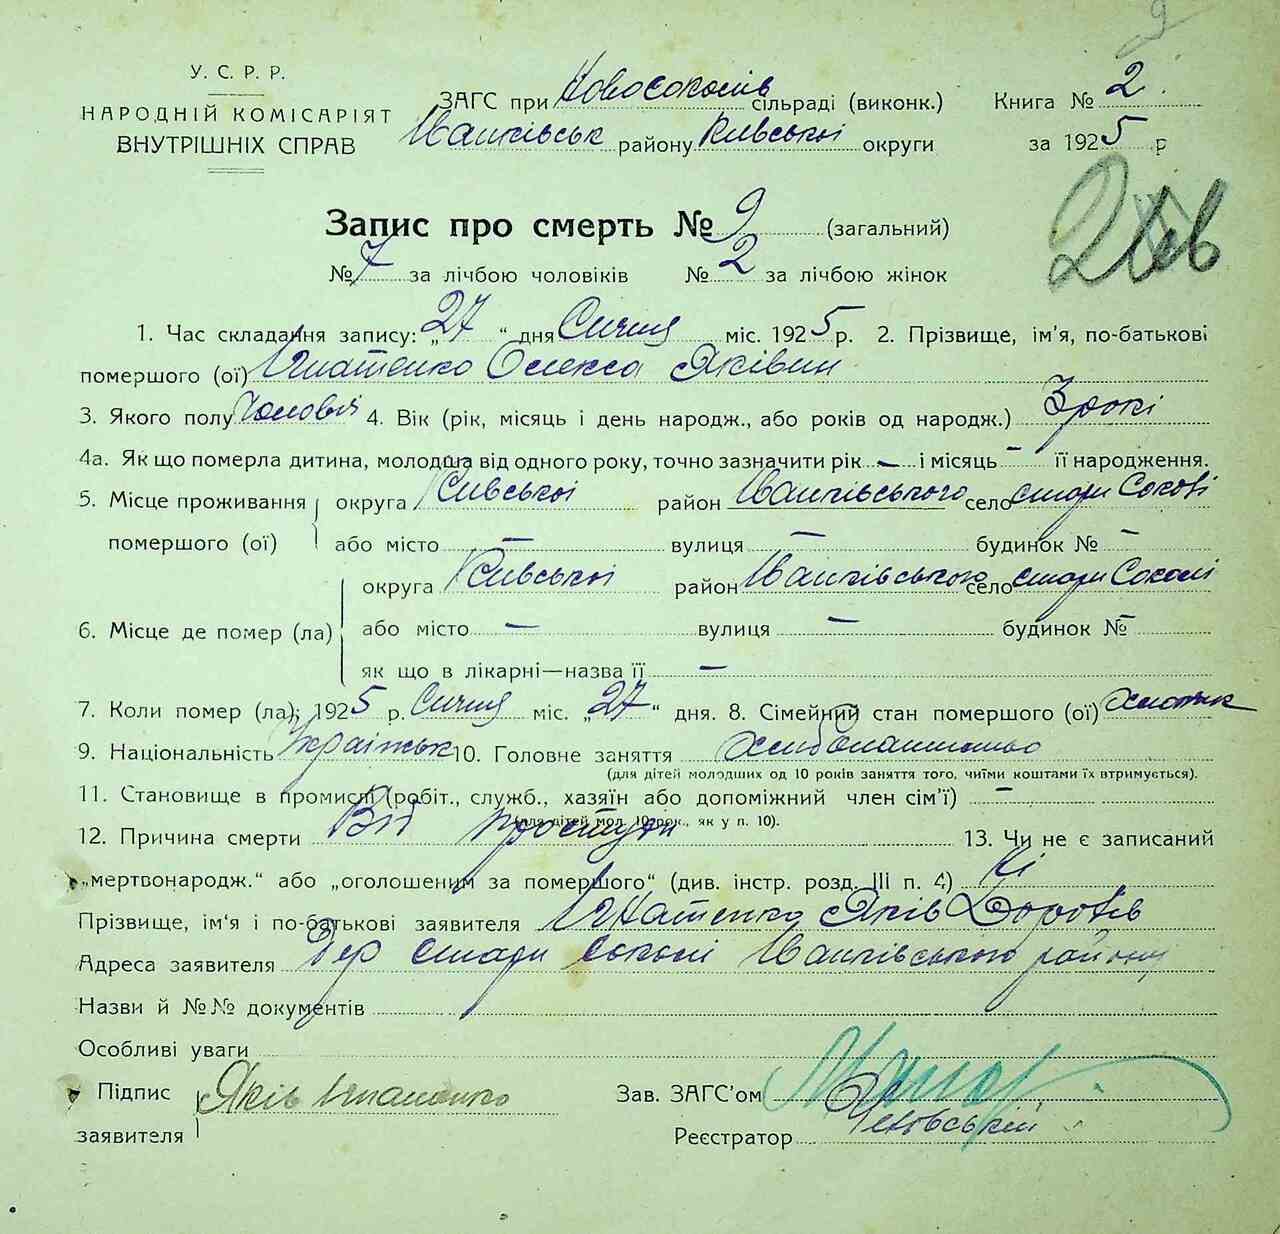 9
У. С. Р. Р.
НАРОДНІЙ КОМІСАРІЯТ
ВНУТРІШНІХ СПРАВ
ЗАГС при Новосоколів сільраді (виконк.)
Іванківськ району Київської округи
Книга № 2.
за 1925 р
Запис про смерть № 9 (загальний)
№ 7 за лічбою чоловіків № 2 за лічбою жінок
1. Час складання запису: „27“ дня Січня міс. 1925 р. 2. Прізвище, ім'я, по-батькові
помершого (ої) Ігнатенко Олекса Яківич
3. Якого полу чоловічі 4. Вік (рік, місяць і день народж., або років од народж.) 3 рокі
4а. Як що померла дитина, молодша від одного року, точно зазначити рік — і місяць — її народження.
5. Місце проживання округа Київської район Іванківського село стари Соколі
помершого (ої) або місто — вулиця — будинок № —
округа Київської район Іванківського село стари Соколі
6. Місце де помер (ла) або місто — вулиця — будинок № —
як що в лікарні—назва її —
7. Коли помер (ла): 1925 р. Січня міс. „27“ дня. 8. Сімейний стан помершого (ої) хлопчик
9. Національність Українськ 10. Головне заняття хліборобство
(для дітей молодших од 10 років заняття того, чиїми коштами їх втримується).
11. Становище в промислі (робіт., служб., хазяїн або допоміжний член сім'ї) —
(для дітей мол. 10 рок., як у п. 10).
12. Причина смерти Від простуди 13. Чи не є записаний
„мертвонародж.“ або „оголошеним за помершого“ (див. інстр. розд. III п. 4) Ні
Прізвище, ім'я і по-батькові заявителя Ігнатенко Яків
Адреса заявителя Дер стари соколі Іванківського району
Назви й №№ документів
Особливі уваги
Підпис Яків Ігнатенко
заявителя
Зав. ЗАГС'ом
Реєстратор